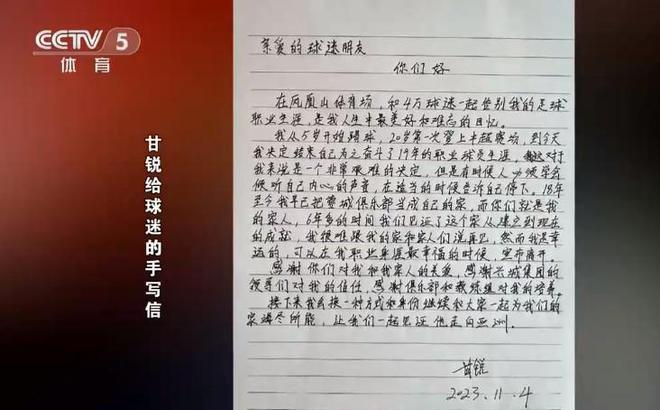 CCTV 5
体育
甘锐给球迷的手写信
亲爱的球迷朋友
你们好
在凤凰山体育场,和4万球迷一起告别我的足球
职业生涯,是我人生中最美好和难忘的回忆。
我从5岁开始踢球,20岁第一次登上中超赛场,到今天
我决定结束自己为之奋斗了19年的职业球员生涯,对于
我来说是一个非常艰难的决定,但是有时候人必须学会
倾听自己内心的声音,在适当的时候告诉自己停下。18年
至今我早已把蓉城俱乐部当成自己的家,而你们就是我
的家人,6年多的时间我们见证了这个家从建立到现在
的成就,我很难跟我的家和家人们说再见,然而我是幸
运的,可以在我职业生涯最幸福的时候,宣布离开。
感谢你们对我和我家人的关爱,感谢兴城集团的
领导们对我的信任,感谢俱乐部和教练组对我的培养。
接下来我会换一种方式和身份继续和大家一起为我们的
家竭尽所能,让我们一起见证他走向亚洲。
甘锐
2023.11.4